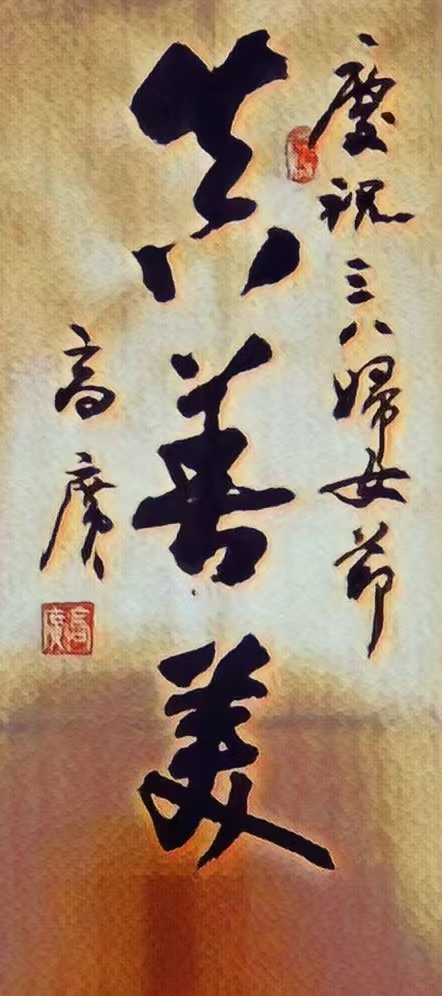 慶祝三八婦女節
真善美
高廣